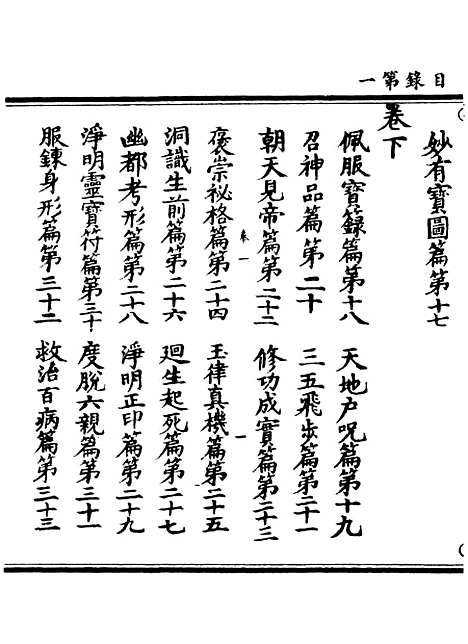 目錄第一
妙有寶圖篇第十七
卷下
佩服寶籙篇第十八 天地戶呪篇第十九
召神品篇第二十 三五飛步篇第二十一
朝天見帝篇第二十二 修功成實篇第二十三
卷一 一
褒崇祕格篇第二十四 玉律真機篇第二十五
洞識生前篇第二十六 廻生起死篇第二十七
幽都考形篇第二十八 淨明正印篇第二十九
淨明靈寶符篇第三十 度脫六親篇第三十一
服鍊身形篇第三十二 救治百病篇第三十三